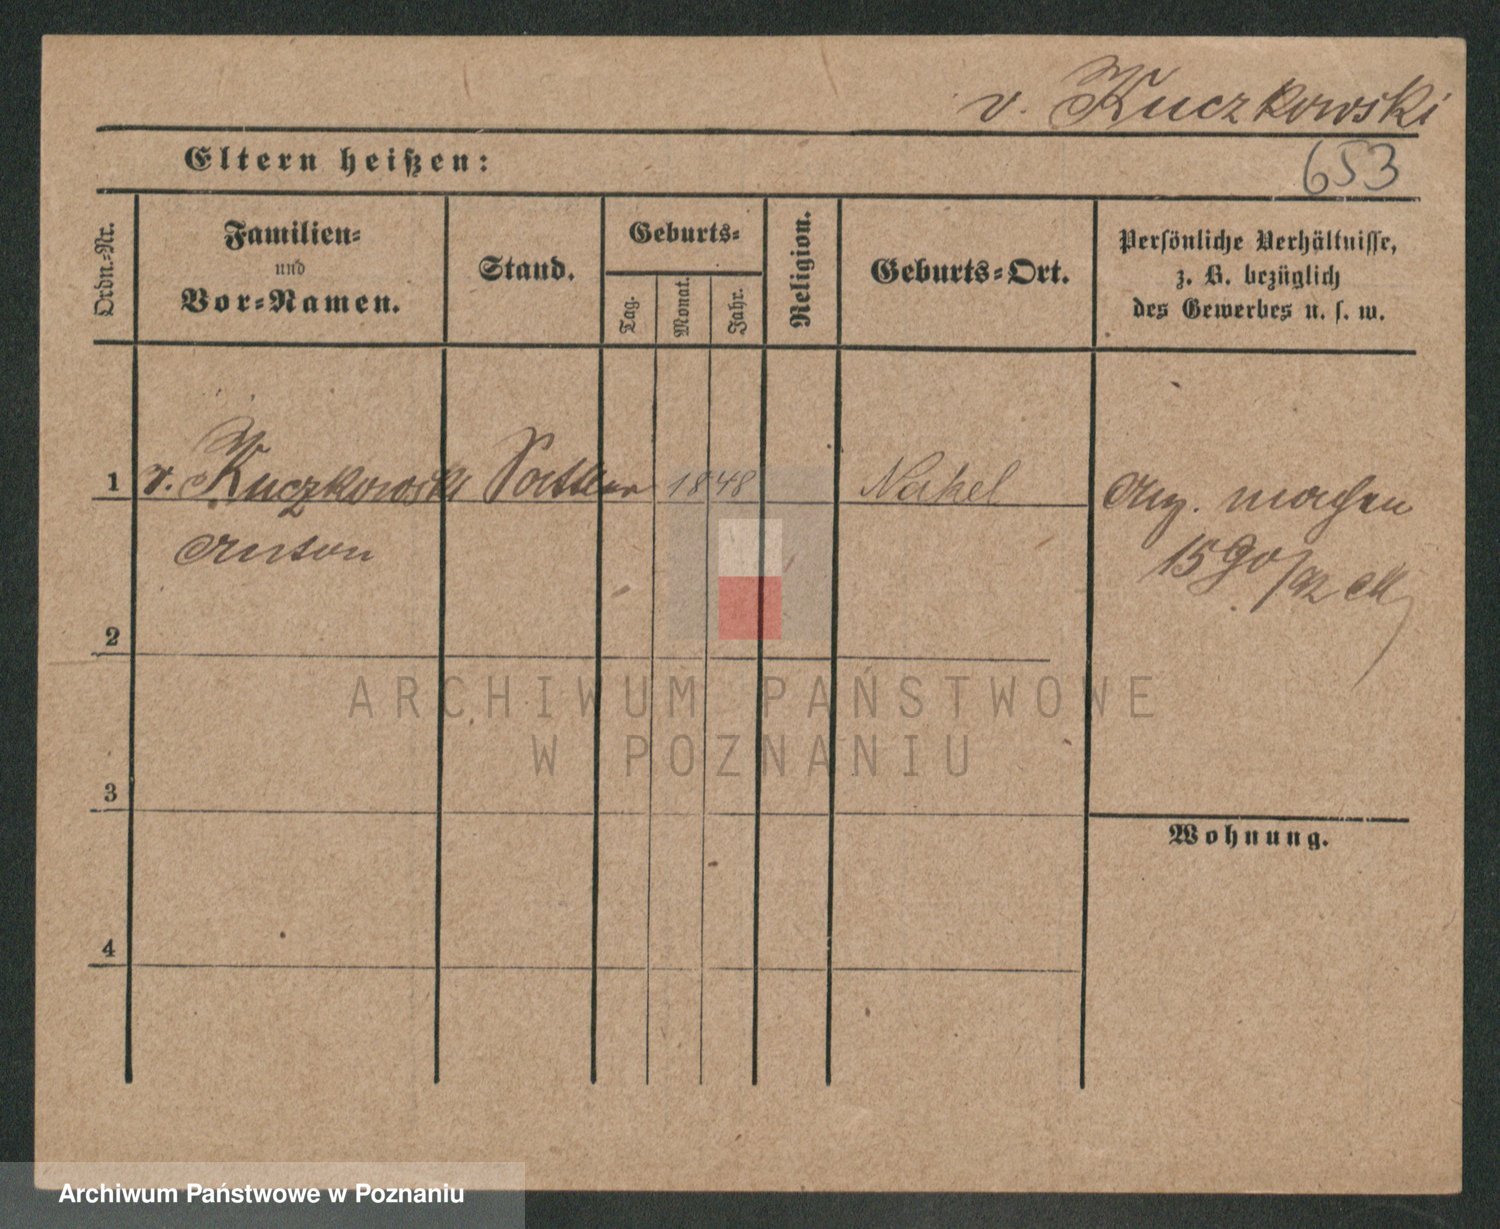 v. Kuczkowski
Eltern heißen:
653
Ordn.-Nr.
Familien-
und
Vor-Namen.
Stand.
Geburts-
Tag.
Monat.
Jahr.
Religion.
Geburts-Ort.
Persönliche Verhältnisse,
z. B. bezüglich
des Gewerbes u. s. w.
1 v. Kuczkowski Sattler 1848 Nakel
Anton
Anz. machen
1590/92
2
3
4
Wohnung.
ARCHIWUM PAŃSTWOWE
W POZNANIU
Archiwum Państwowe w Poznaniu